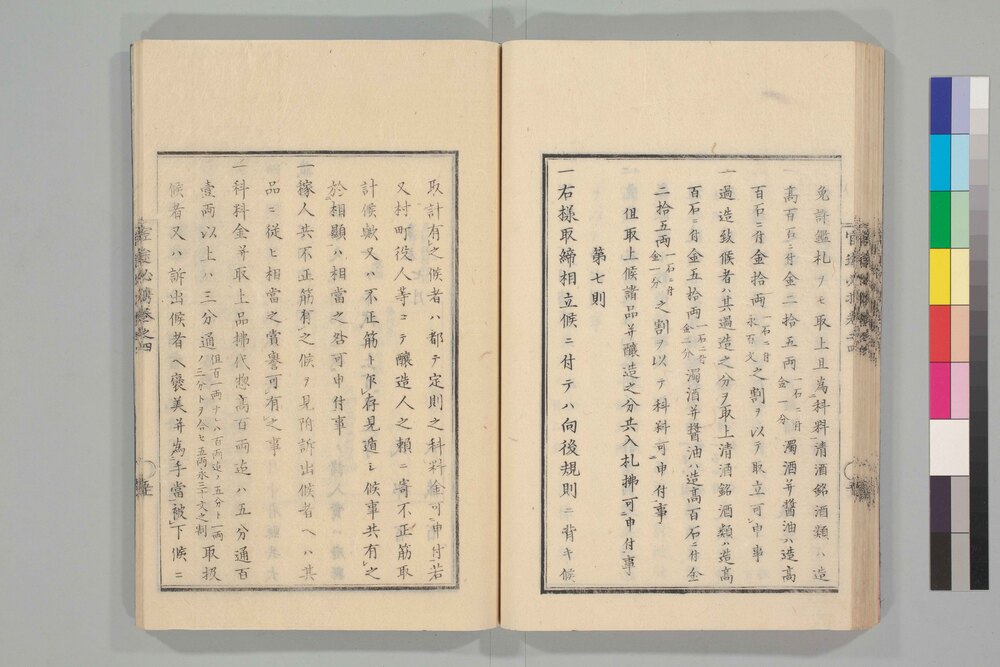 免許鑑札ヲモ取上且為科料清酒銘酒類ハ造
高百石ニ付金二拾五両一石ニ付金一分濁酒并醤油ハ造高
百石ニ付金拾両一石ニ付永百文之割ヲ以テ取立可申事
一過造致候者ハ其過造之分ヲ取上清酒銘酒類ハ造高
百石ニ付金五拾両一石ニ付金二分濁酒并醤油ハ造高百石ニ付金
二拾五両一石ニ付金一分之割ヲ以テ科料可申付事
但取上候諸品并醸造之分共入札拂可申付事
第七則
一右様取締相立候ニ付テハ向後規則ニ背キ候
取計有之候者ハ都テ定則之科料金可申付若
又村町役人等ニテ醸造人之頼ニ寄不正筋取
計候歟又ハ不正筋ト乍存見遁シ候事共有之
於相顕ハ相當之咎可申付事
一稼人共不正筋有之候ヲ見附訴出候者ヘハ其
品ニ従ヒ相當之賞誉可有之事
一科料金并取上品拂代惣高百両迄ハ五分通百
壹両以上ハ三分通但百一両ナレハ百両迄ノ五分ト一両ノ三分トヲ合セ五両永三十文之割取扱
候者又ハ訴出候者ヘ褒美并為手當被下候ニ